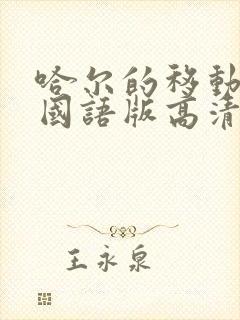 哈尔的移動
國語版高清
王永泉